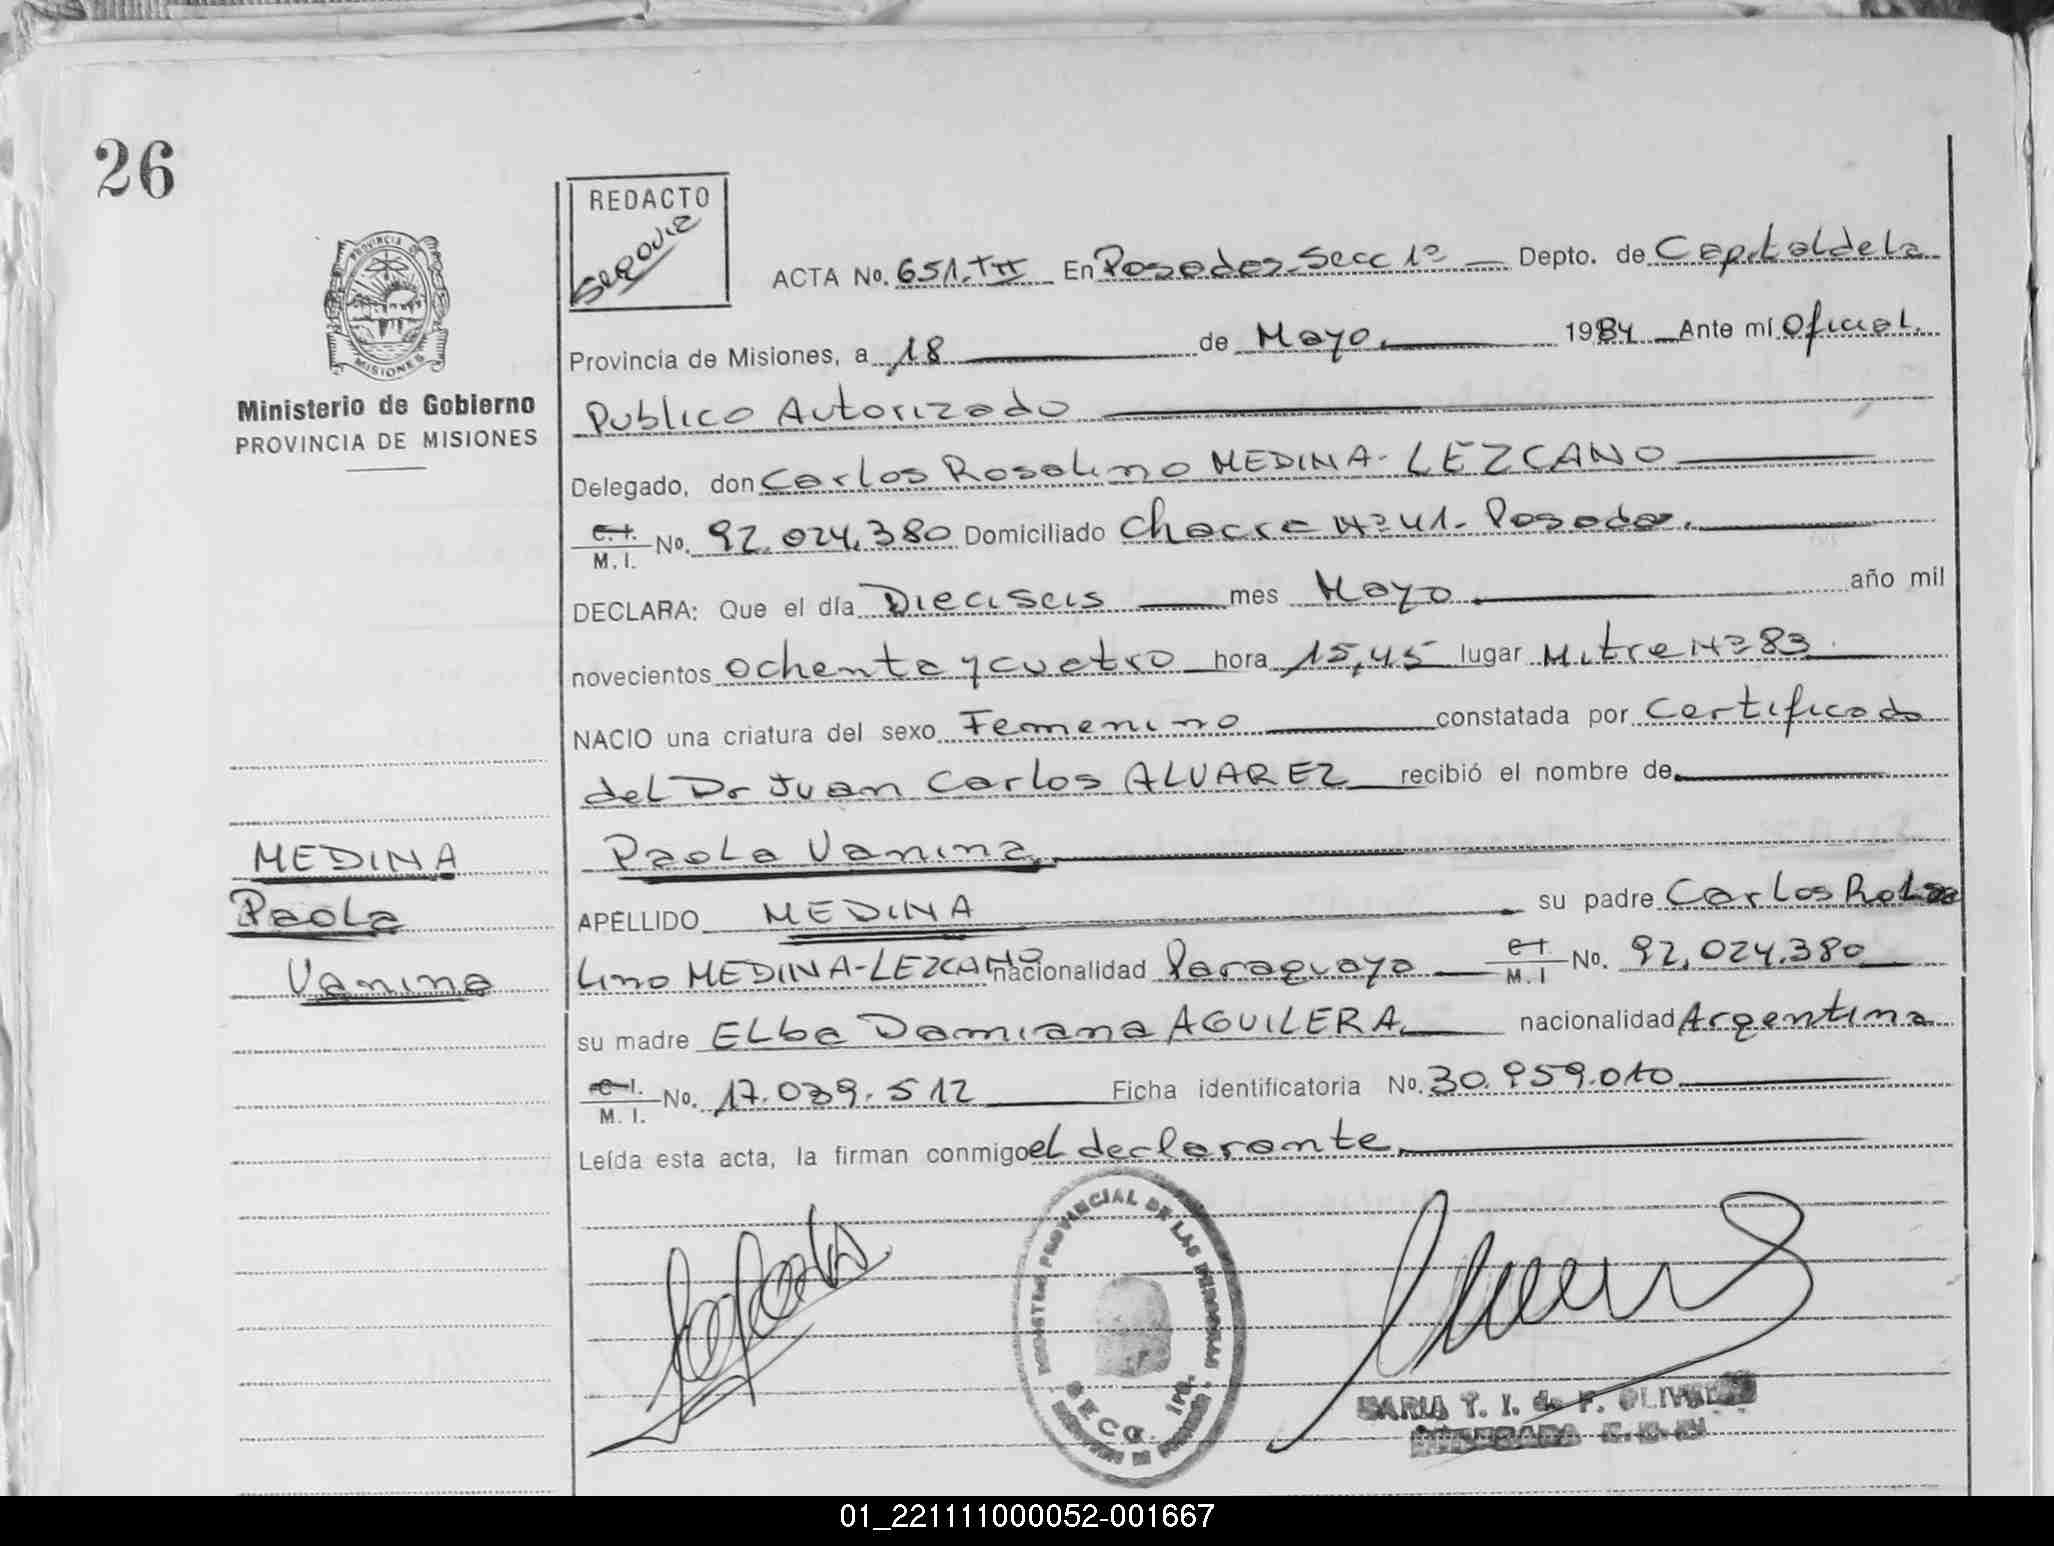 26
REDACTO
Segovia
PROVINCIA DE
MISIONES
Ministerio de Gobierno
PROVINCIA DE MISIONES
ACTA No. 651.TII En Posadas-Secc 1ª Depto. de Capital de la
Provincia de Misiones, a 18 de Mayo. 1984 Ante mí Oficial.
Publico Autorizado
Delegado, don Carlos Rosalino MEDINA-LEZCANO
C.I. M.I. No. 92.024.380 Domiciliado Chacra Nº 41. Posadas.
DECLARA: Que el día Dieciseis mes Mayo año mil
novecientos ochenta y cuatro hora 15,45 lugar Mitre Nº 83.
NACIO una criatura del sexo Femenino constatada por Certificado
del Dr Juan Carlos ALVAREZ recibió el nombre de
MEDINA
Paola Vanina.
Paola
APELLIDO MEDINA su padre Carlos Rosa
Vanina
lino MEDINA-LEZCANO nacionalidad Paraguayo C.I. M.I No. 92,024.380
su madre Elba Damiana AGUILERA. nacionalidad Argentina
C.I. M.I. No. 17.039.512 Ficha identificatoria No. 30.959.010
Leída esta acta, la firman conmigo el declarante.
REGISTRO PROVINCIAL DE LAS PERSONAS
SECC. 1ra.
MARIA T. I. de F. OLIVERA